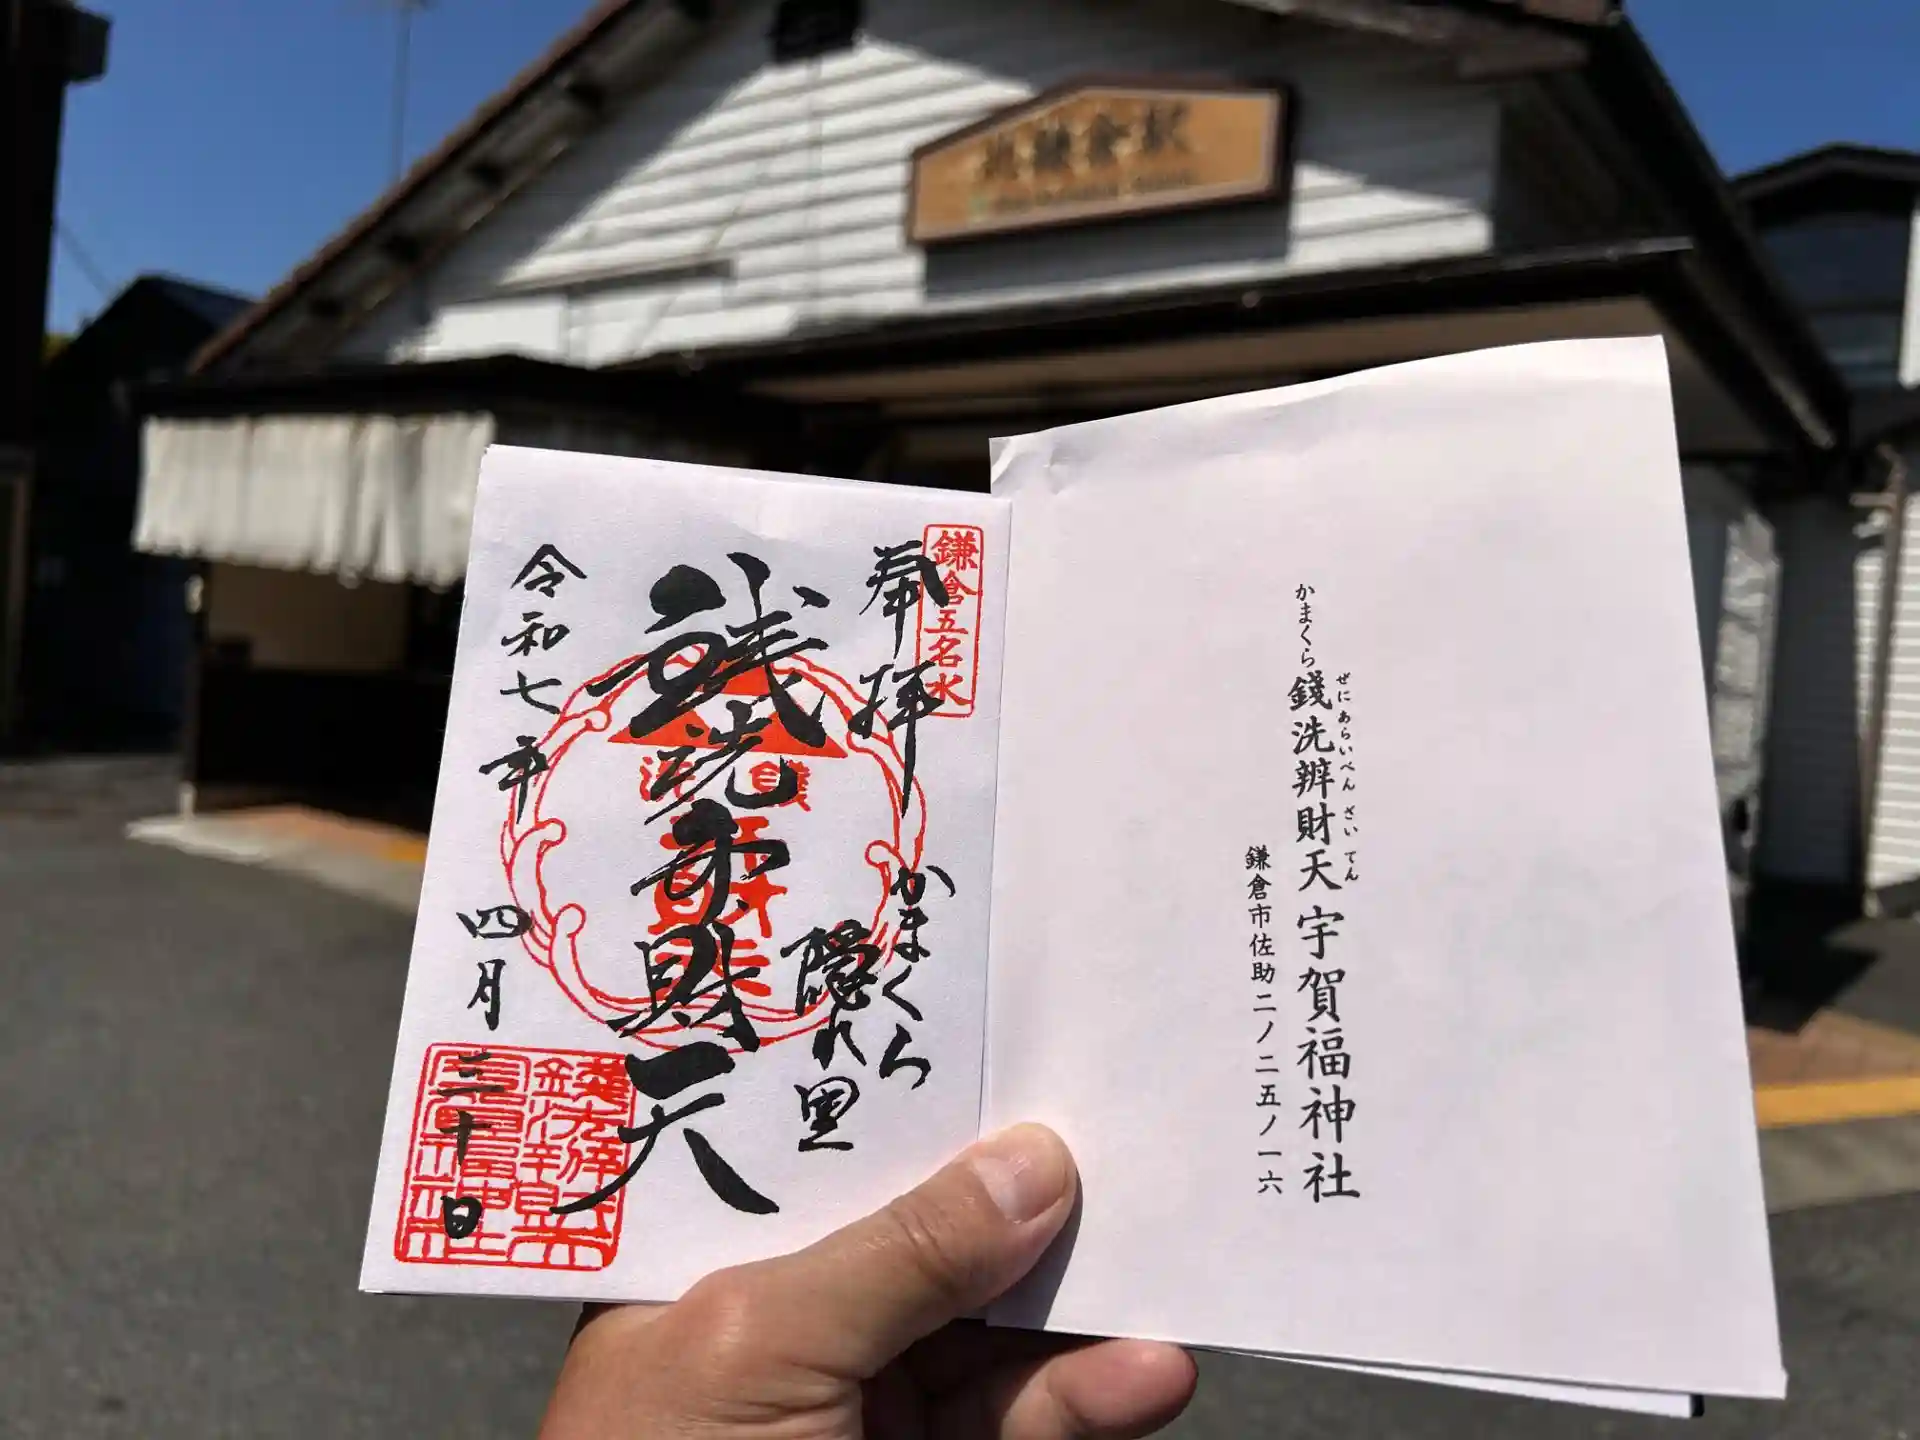 北鎌倉駅
かまくら銭洗辨財天宇賀福神社
ぜにあらいべんざいてん
鎌倉市佐助二ノ二五ノ一六
鎌倉五名水
奉拝
かまくら
隠れ里
銭洗弁財天
令和七年
四月
三十日